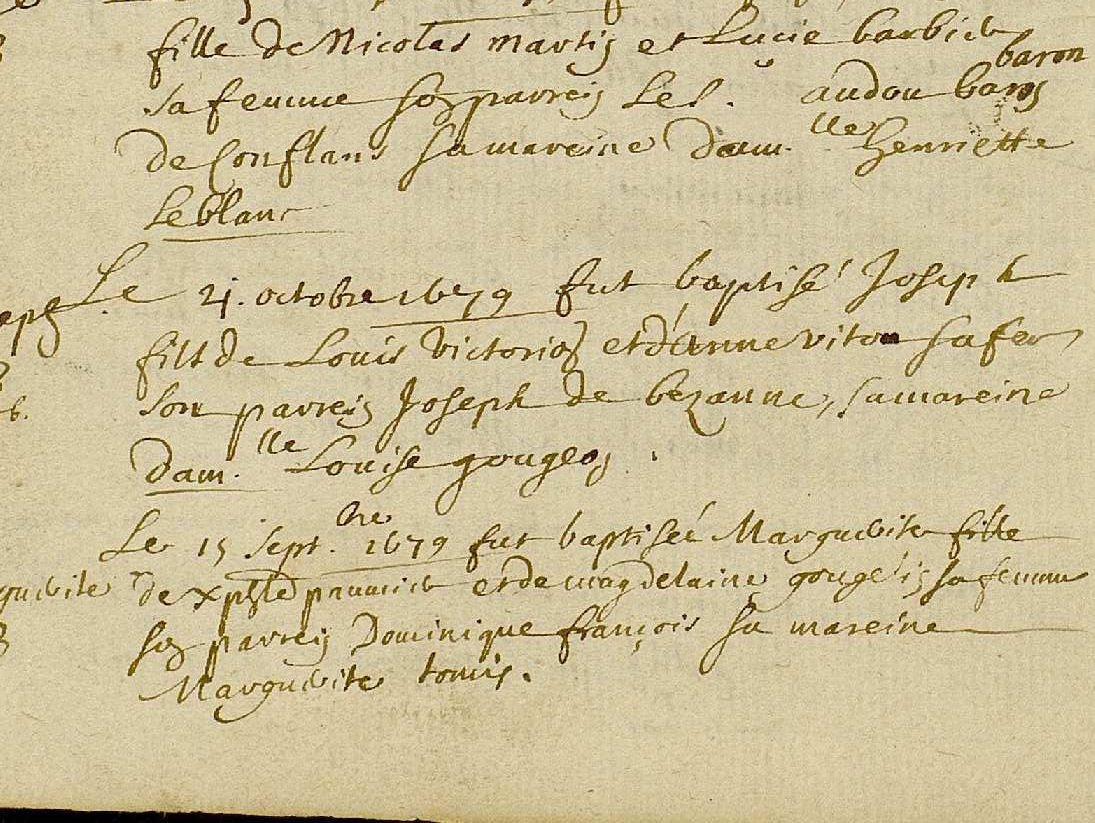 fille de Nicolas martin et Lucie barbier
baron
sa femme son parrein Le S. audou baron
de Conflans sa mareine dam.lle henriette
Leblanc
Le 21. octobre 1679 fut baptisé Joseph
fils de Louis Victorion et d'anne viton sa fem
son parrein Joseph de bezanne, sa mareine
dam.lle Louise gougeon.
Le 15 Sept.bre 1679 fut baptiseé Marguerite fille
de xphle et de magdelaine sa femme
son parrein Dominique françois sa mareine
Marguerite